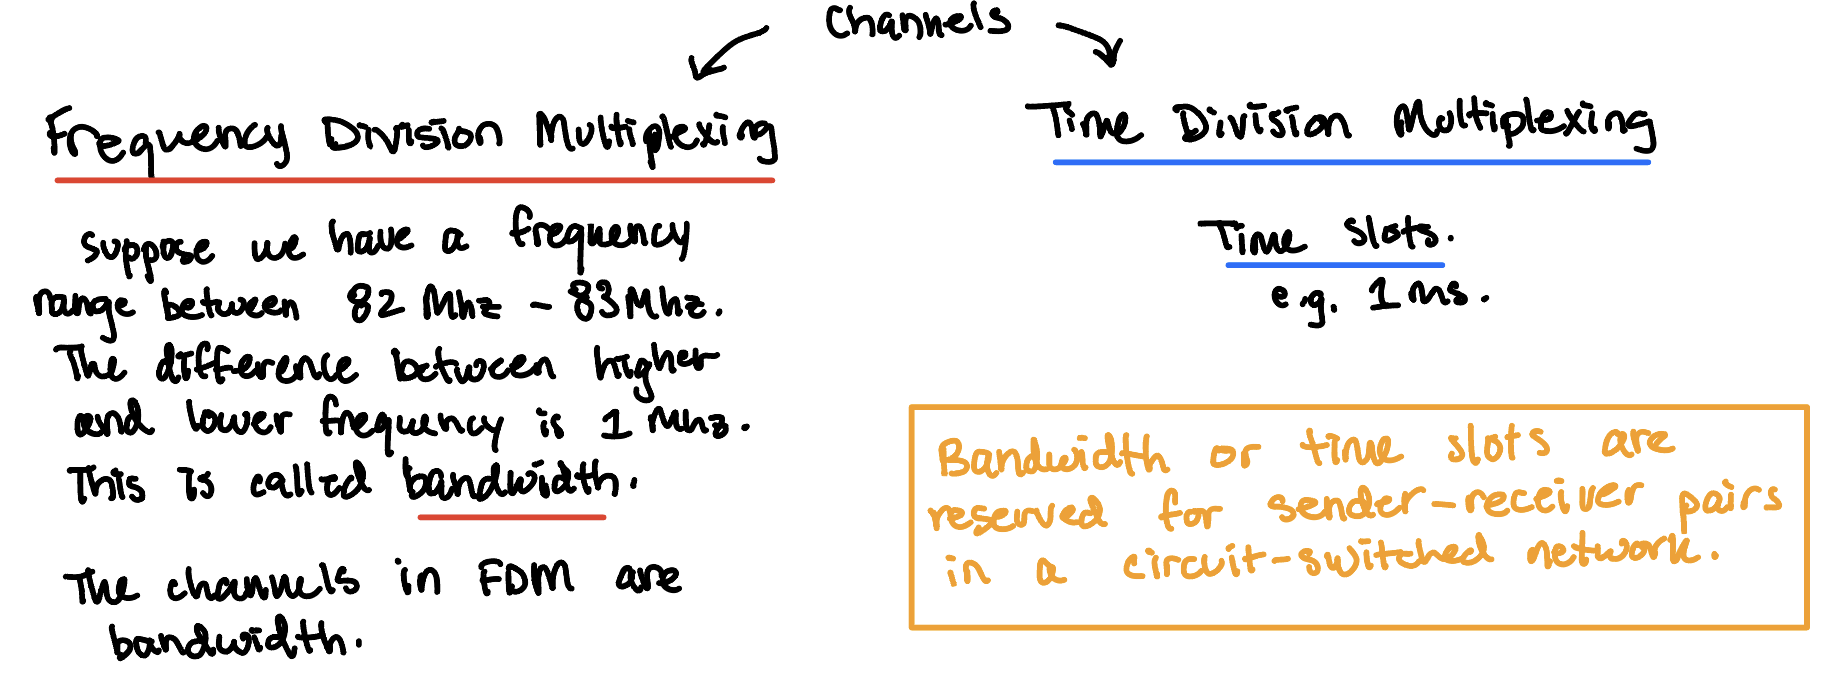 Channels
Frequency Division Multiplexing
Suppose we have a frequency
range between 82 Mhz - 83 Mhz.
The difference between higher
and lower frequency is 1 Mhz.
This is called bandwidth.
The channels in FDM are
bandwidth.
Time Division Multiplexing
Time slots.
e.g. 1 ms.
Bandwidth or time slots are
reserved for sender-receiver pairs
in a circuit-switched network.